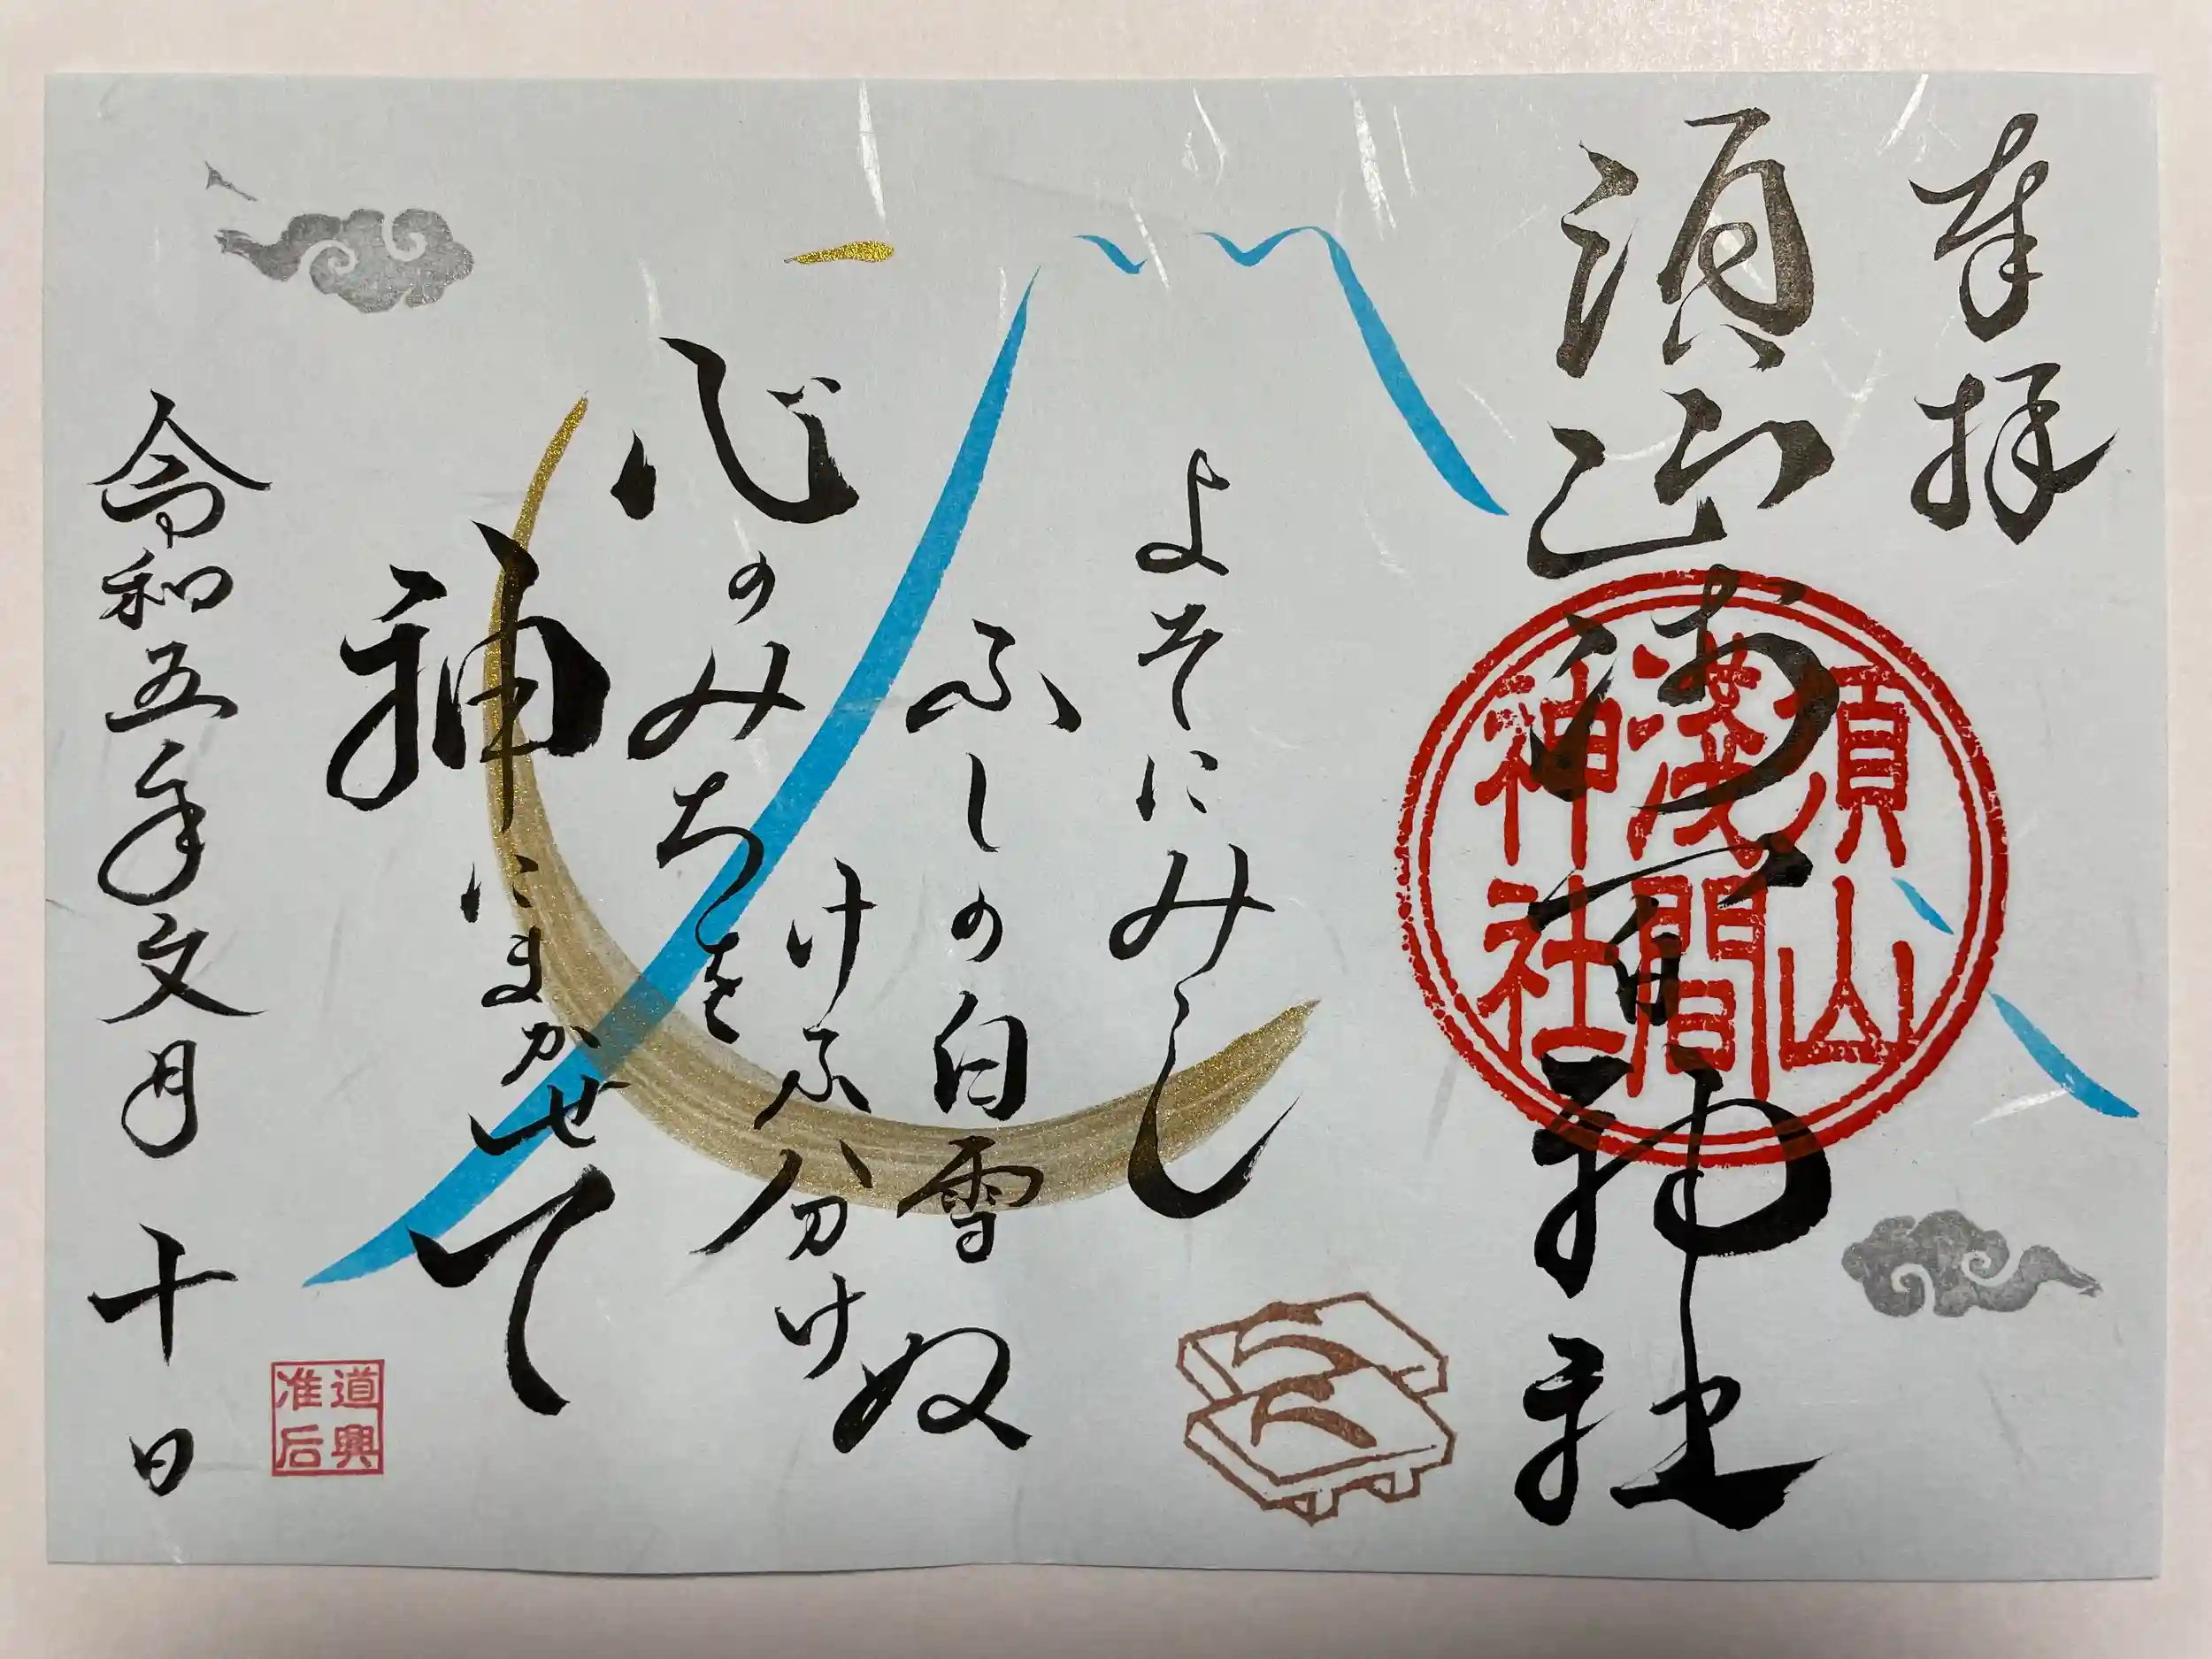 奉拝
須山浅間神社
須山
浅間
神社
よそにみし
ふしの白雪
けふ分けぬ
心のみちを
神にまかせて
令和五年文月十日
道興
准后